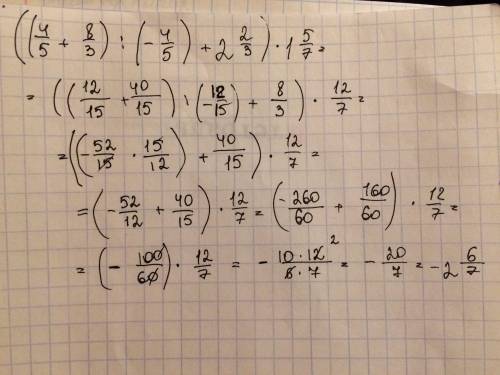 ((4/5 + 8/3) : (-4/5) + 2 2/3) · 1 5/7 =
= ((12/15 + 40/15) : (-12/15) + 8/3) · 12/7 =
= ((-52/15 · 15/12) + 40/15) · 12/7 =
= (-52/12 + 40/15) · 12/7 = (-260/60 + 160/60) · 12/7 =
= (-100/60) · 12/7 = - 10·12/6·7 2 = - 20/7 = -2 6/7